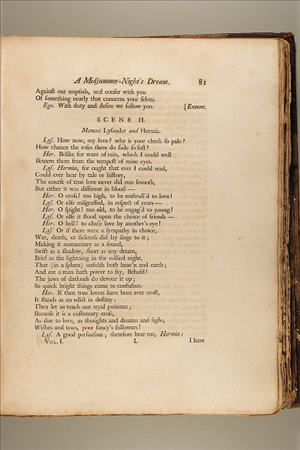 A Midsummer-Night's Dream. 81
Against our nuptials, and confer with you
Of something nearly that concerns your selves.
Ege. With duty and desire we follow you. [Exeunt.
SCENE II.
Manent Lysander and Hermia.
Lys. How now, my love? why is your cheek so pale?
How chance the roses there do fade so fast?
Her. Belike for want of rain, which I could well
Beteem them from the tempest of mine eyes.
Lys. Hermia, for ought that ever I could read,
Could ever hear by tale or history,
The course of true love never did run smooth,
But either it was different in blood —
Her. O cross! too high, to be enthrall'd to love!
Lys. Or else misgraffed, in respect of years —
Her. O spight! too old, to be engag'd to young!
Lys. Or else it stood upon the choice of friends —
Her. O hell! to chuse love by another's eye!
Lys. Or if there were a sympathy in choice,
War, death, or sickness did lay siege to it;
Making it momentary as a sound,
Swift as a shadow, short as any dream,
Brief as the lightning in the collied night,
That (in a spleen) unfolds both heav'n and earth;
And ere a man hath power to say, Behold!
The jaws of darkness do devour it up;
So quick bright things come to confusion.
Her. If then true lovers have been ever crost,
It stands as an edict in destiny:
Then let us teach our tryal patience;
Because it is a customary cross,
As due to love, as thoughts and dreams and sighs,
Wishes and tears, poor fancy's followers!
Lys. A good persuasion; therefore hear me, Hermia:
VOL. I. L I have